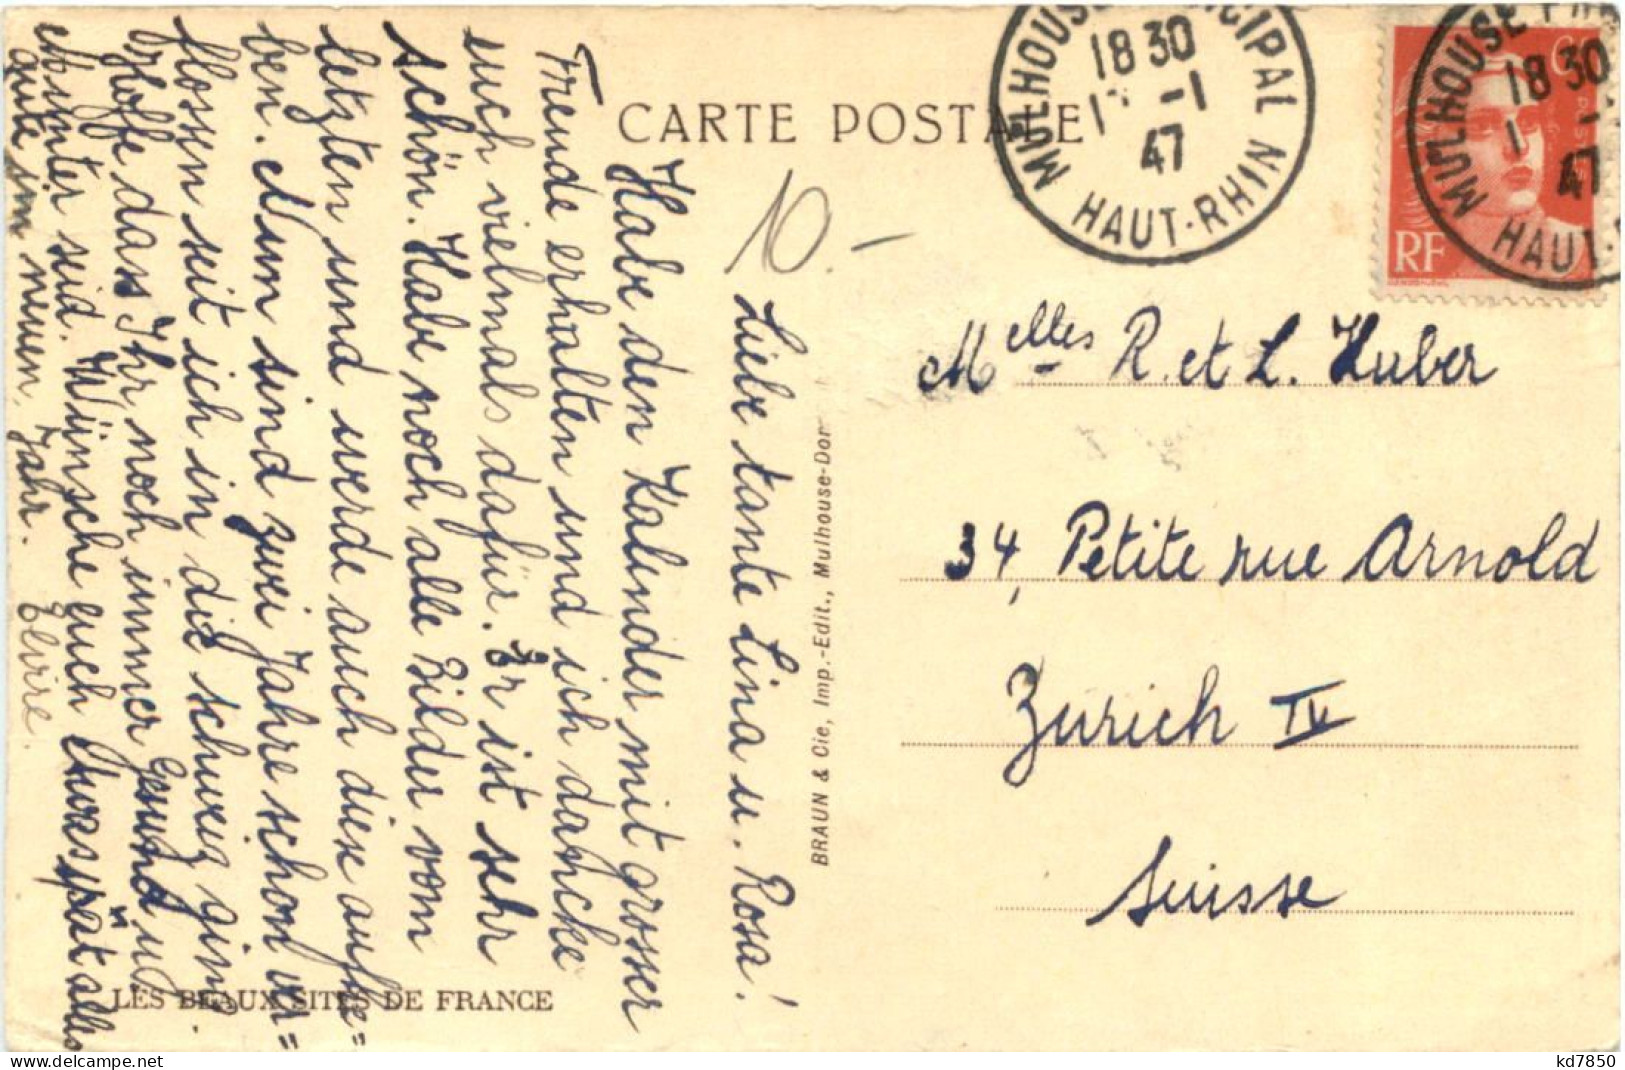 CARTE POSTALE
MULHOUSE PRINCIPAL
18 30
1 -1
47
HAUT-RHIN
MULHOUSE
18 30
1
47
HAUT-
RF
10.-
Melles R. et L. Huber
34, Petite rue Arnold
Zurich IV
Suisse
BRAUN & Cie, Imp.-Edit., Mulhouse-Dor
Liebe tante Lina u. Rosa!
Habe den Kalender mit grosser
Freude erhalten und ich dancke
euch vielmals dafür. Er ist sehr
schön. Habe noch alle Bilder vom
letzten und werde auch diese aufhe=
ben. Nun sind zwei Jahre schon ver=
flossen seit ich in die schweiz ging.
Hoffe dass Ihr noch immer Gesund u.
Munter seid. Wünsche euch etwas spät alles
gute im neuen Jahr. Elvire.
LES BEAUX SITES DE FRANCE
kd7850